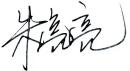 朱亮亮